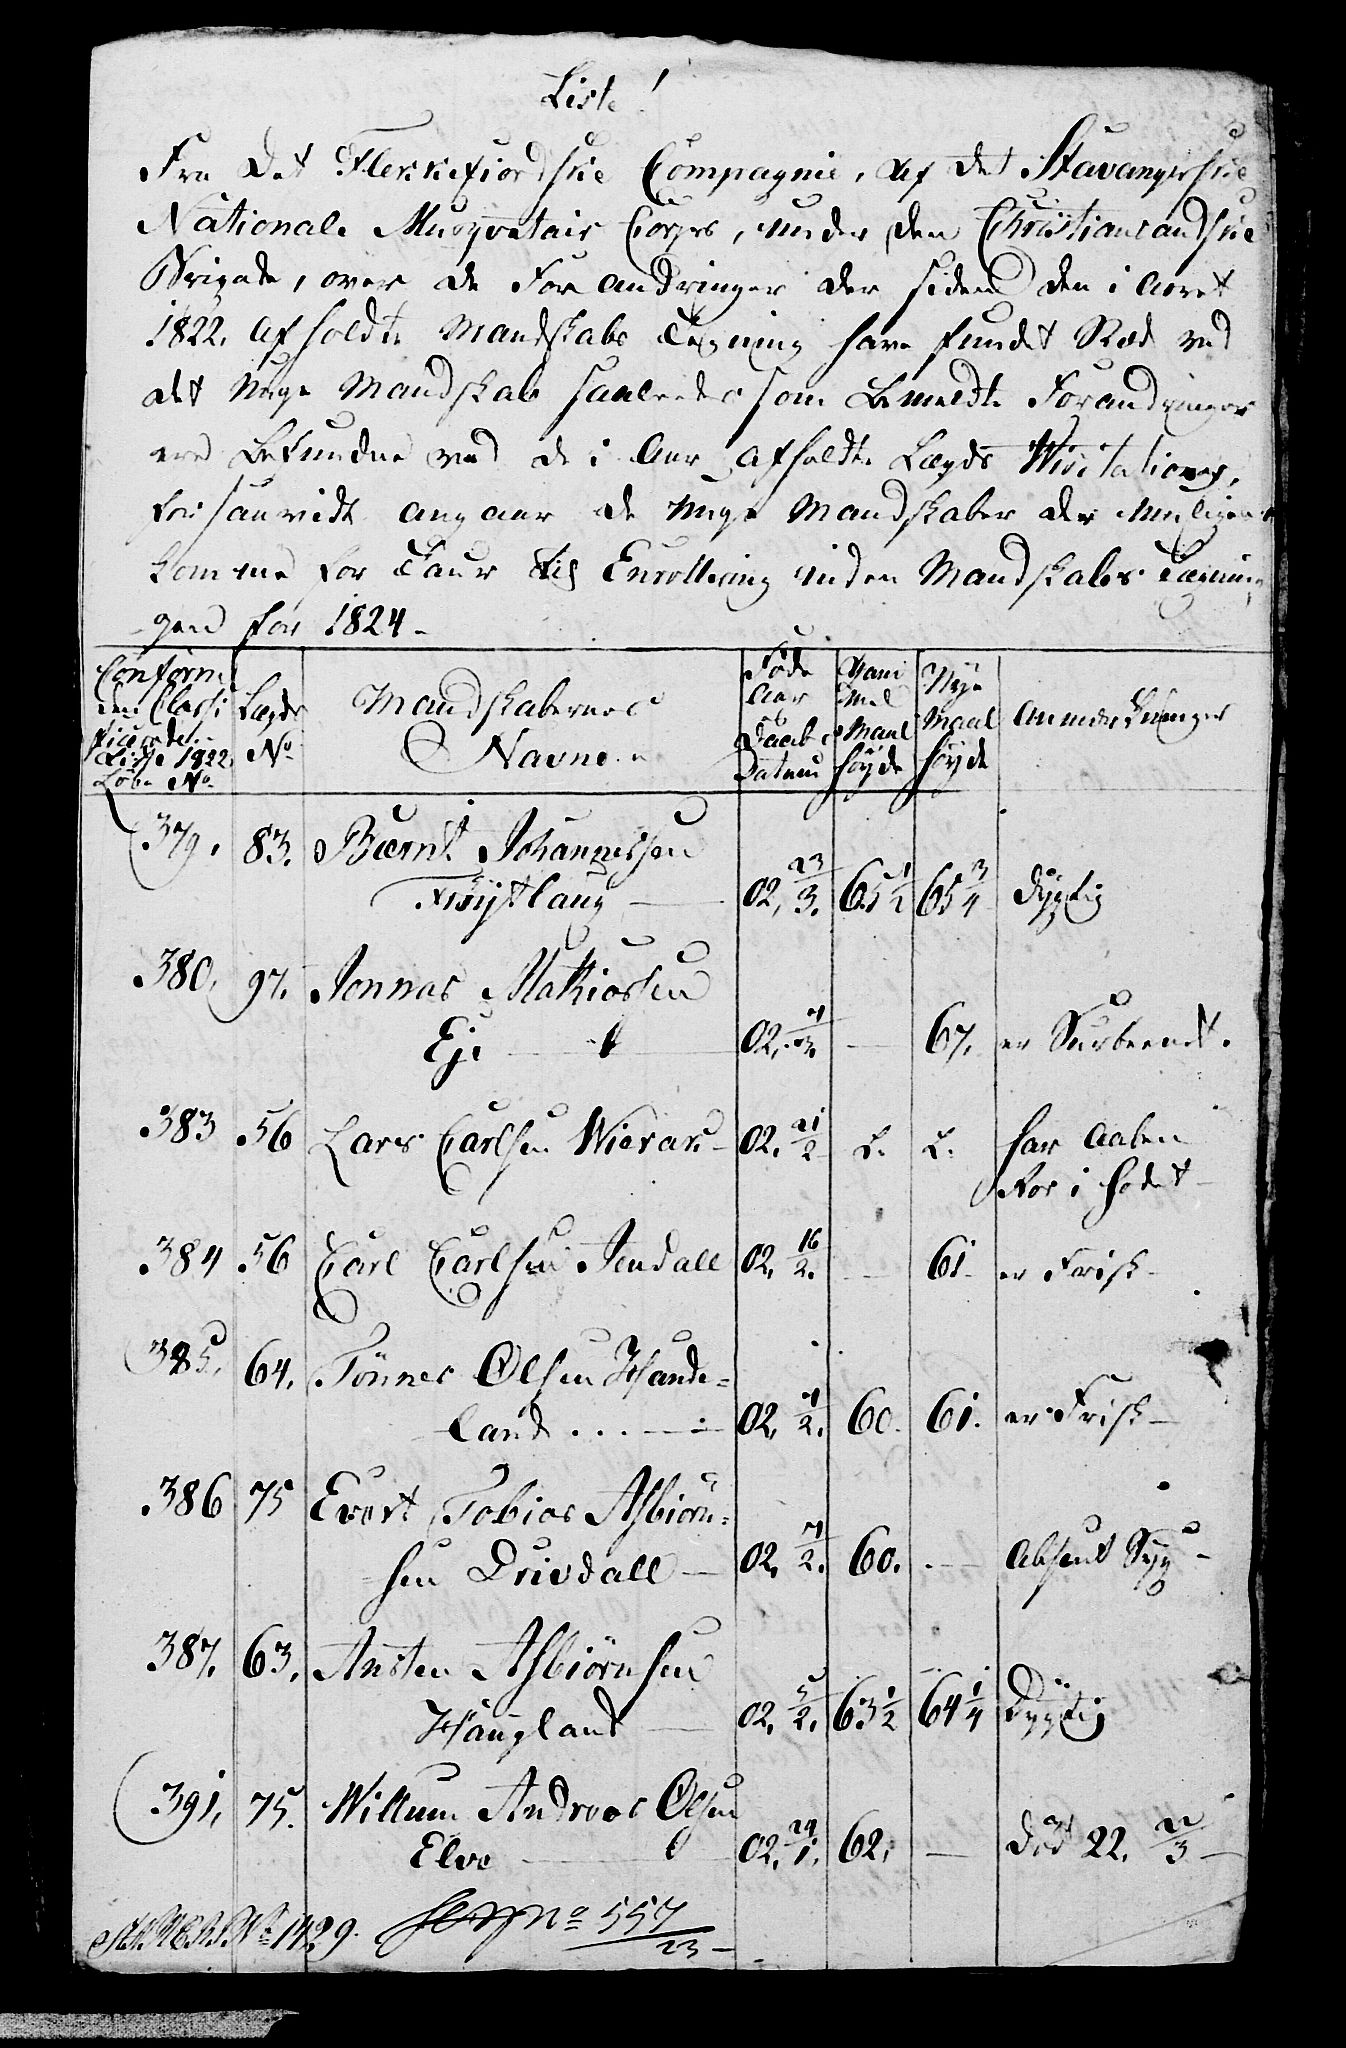 Liste!
Fra det Flekkefiordske Compagnie, af det Stavangerske
Nationale Musqvetair Corps, under den Christiansandske
Brigade, over de Forandringer der siden den i Aaret
1822 afholdte Mandskabs Tegning have fundet Stæd ved
det unge Mandskab saaledes som bemeldte Forandringer
ere befundne ved de i Aar afholdte Lægds Visitationer,
forsaavidt angaar de unge Mandskaber der muligens
komme for Tour til Enrollering inden Mandskabs Tegnin-
gen for 1824 -
Conform den Classificerede Liste 1822 Løbe No. Lægds No. Mandskabernes Navne Føde Aar & Daabs Datum Gammel Maal høyde Nye Maal høyde Anmærkninger
379. 83. Bærnt Johannessen
Frøytlaug 02. 23/3. 65 1/2 65 3/4 dygtig
380. 97. Jonnas Mathiassen
Eje 02. 4/3. - 67. er Surbeendt.
383 56 Lars Carlsen Wierak 02. 21/2 L. L. har aaben
Roes i hodet -
384 56 Carl Carlsen Jendall 02. 16/2. - 61 - er Frisk -
385. 64. Tönnes Olsen Hande=
land 02. 4/2. 60. 61. er Frisk -
386 75 Evert Tobias Asbiörn=
sen Drivdall - 02. 7/2. 60. - absent Syg -
387. 63. Ansten Asbiörnsen
Haugland 02. 5/2. 63 1/2 64 1/4 Dygtig
391. 75. Willum Andreas Olsen
Elve 02. 29/1. 62. - död 22. 22/3 -
No 1429. No 557/23 -